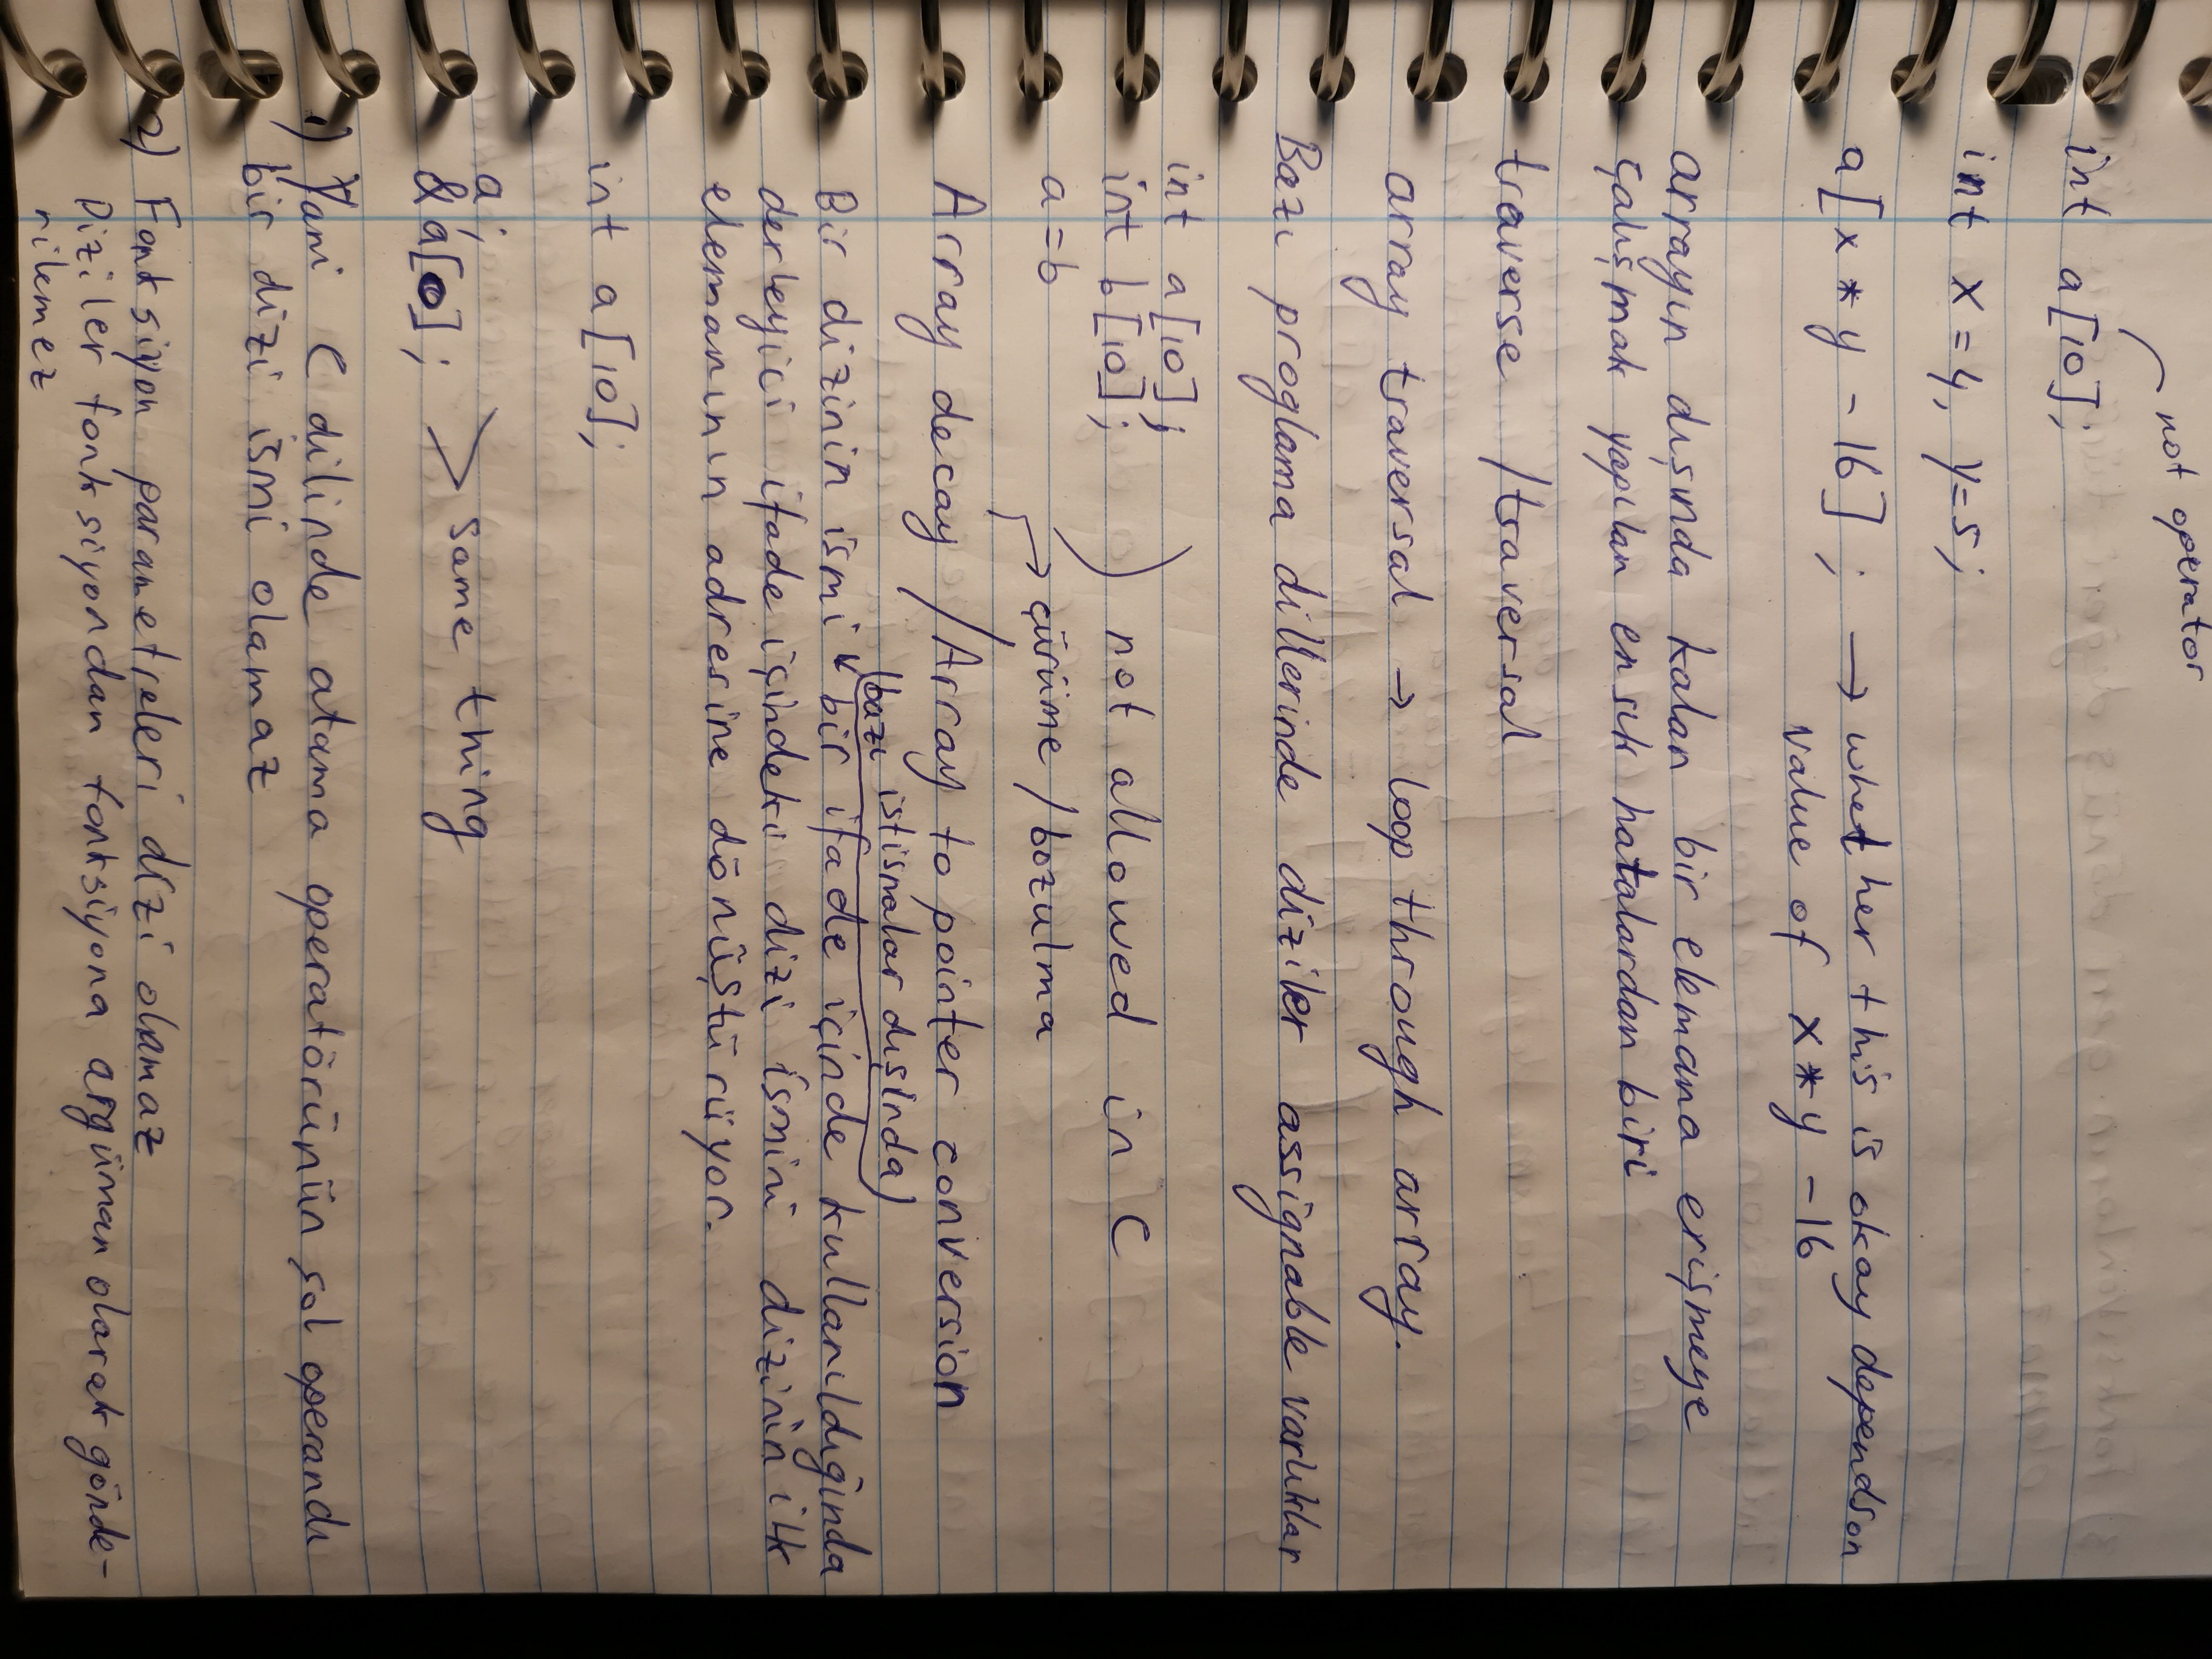 not operator
int a[10];
int x = 4, y=5;
a[x * y - 16] ; → whether this is okay depends on
value of x * y - 16
arrayın dışında kalan bir elemana erişmeye
çalışmak yapılan en sık hatalardan biri
traverse / traversal
array traversal → loop through array.
Bazı proglama dillerinde diziler assignable varlıklar
int a[10];
int b[10];
not allowed in C
a=b
→ çürüme / bozulma
Array decay / Array to pointer conversion
(bazı istisnalar dışında)
Bir dizinin ismi bir ifade içinde kullanıldığında
derleyici ifade içindeki dizi ismini dizinin ilk
elemanının adresine dönüştürüyor.
int a[10];
a;
&a[0]; > same thing
1) Yani C dilinde atama operatörünün sol operandı
bir dizi ismi olamaz
2) Fonksiyon parametreleri dizi olamaz
Diziler fonksiyondan fonksiyona argüman olarak gönde-
rilemez